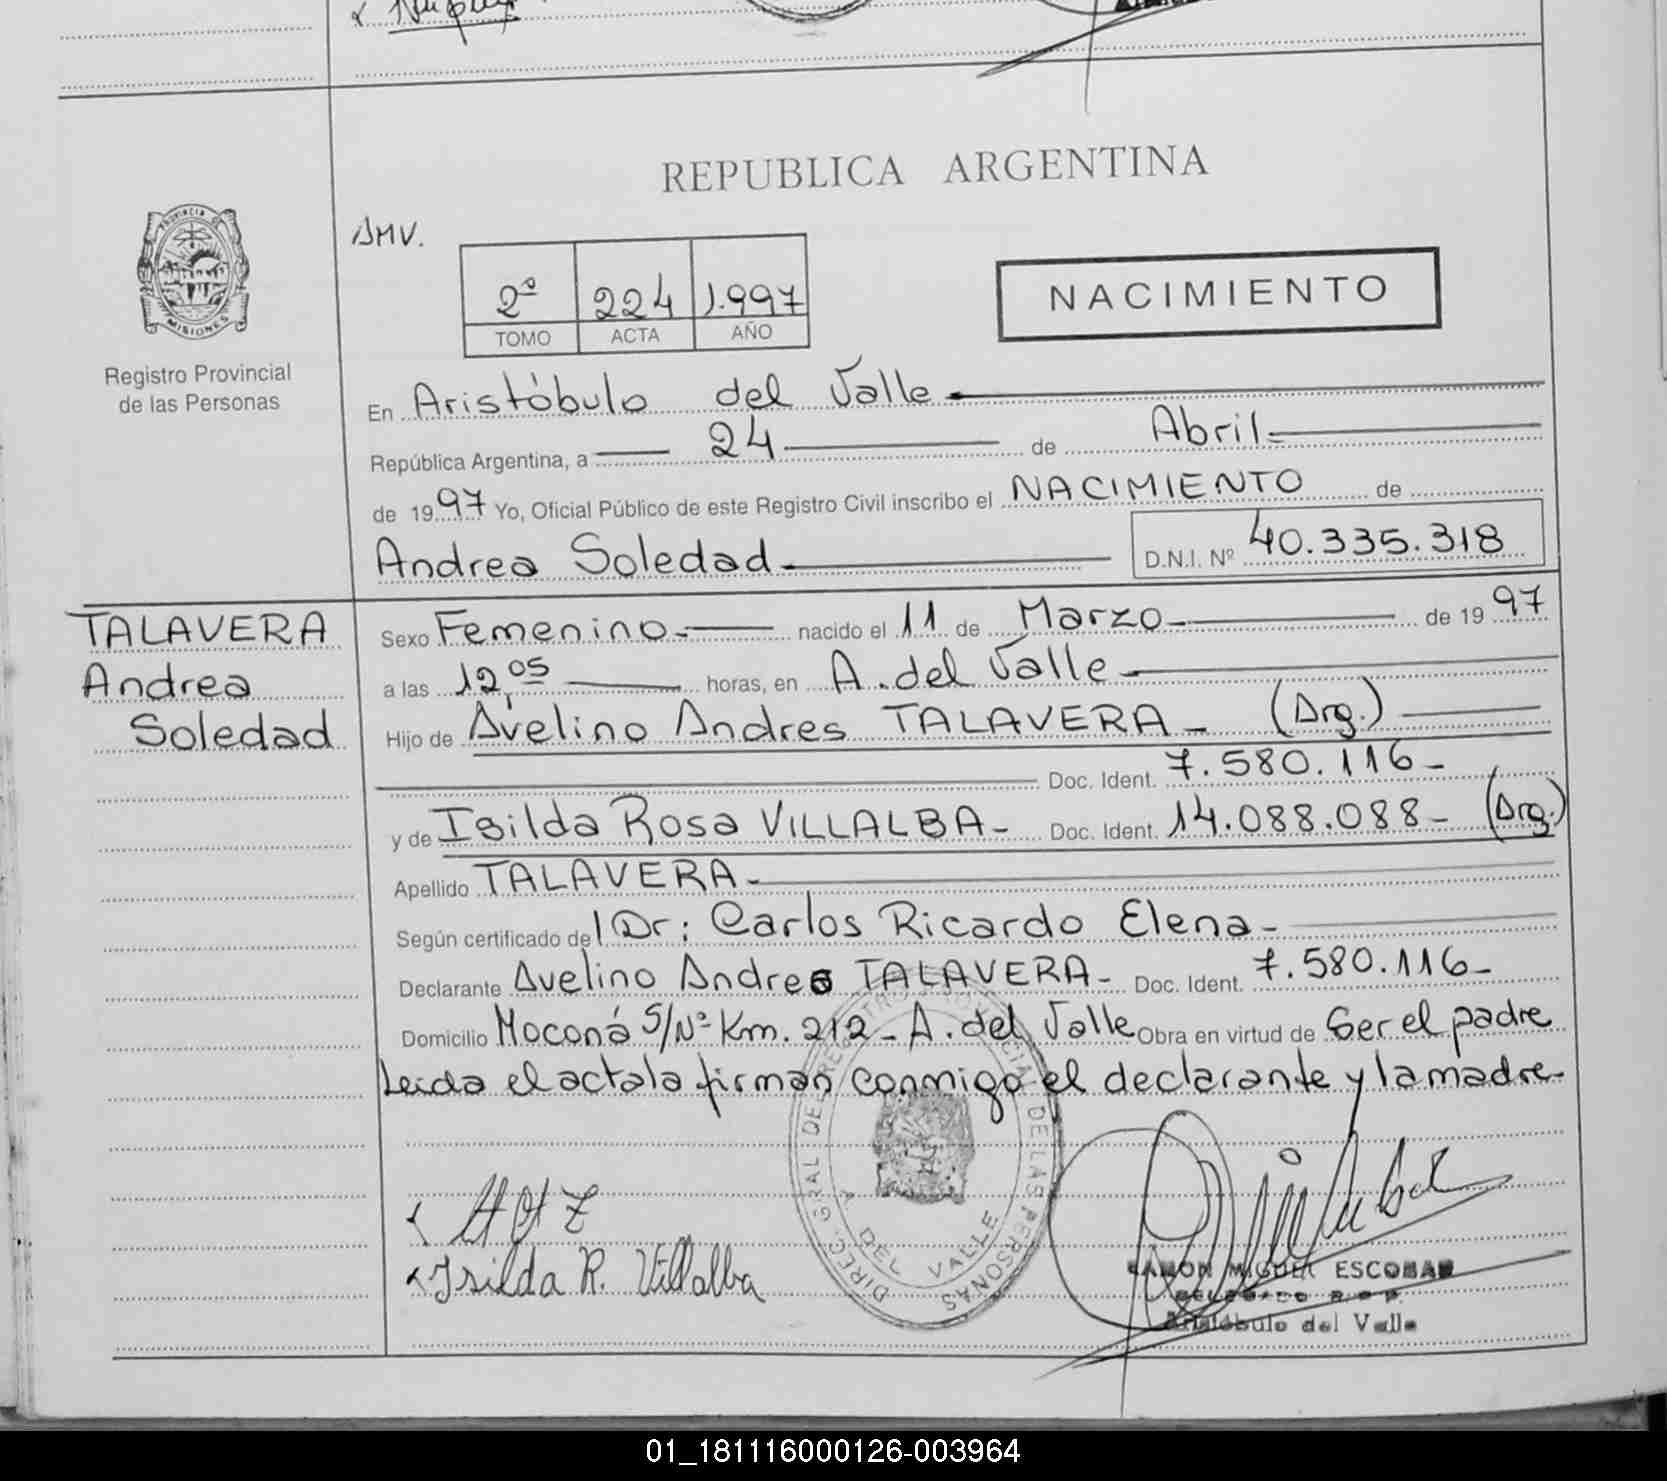 REPUBLICA ARGENTINA
AMV.
PROVINCIA DE
MISIONES
Registro Provincial
de las Personas
2º 224 1.997
TOMO ACTA AÑO
NACIMIENTO
En Aristóbulo del Valle
República Argentina, a 24 de Abril
de 1997 Yo, Oficial Público de este Registro Civil inscribo el NACIMIENTO de
Andrea Soledad D.N.I. Nº 40.335.318
TALAVERA
Andrea
Soledad
Sexo Femenino nacido el 11 de Marzo de 1997
a las 12,05 horas, en A. del Valle
Hijo de Avelino Andres TALAVERA (Arg.)
Doc. Ident. 7.580.116
y de Isilda Rosa VILLALBA Doc. Ident. 14.088.088 (Arg.)
Apellido TALAVERA
Según certificado del Dr: Carlos Ricardo Elena
Declarante Avelino Andres TALAVERA Doc. Ident. 7.580.116
Domicilio Moconá S/Nº Km. 212 - A. del Valle Obra en virtud de Ser el padre
Leida el acta la firman conmigo el declarante y la madre
DIREC. GRAL DEL REGISTRO PROVINCIAL DE LAS PERSONAS
A. DEL VALLE
Isilda R. Villalba
RAMON MIGUEL ESCOBAR
DELEGADO R.P.P.
Aristóbulo del Valle
01_181116000126-003964